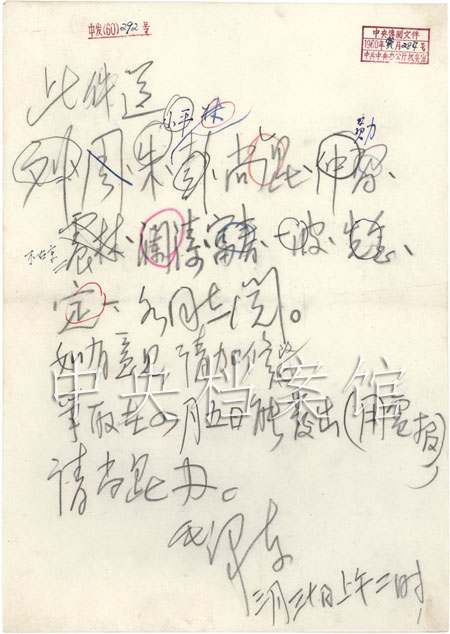 中发(60)292号
中央传阅文件
1960年 月284号
中共中央办公厅机要室
此件送
小平 林
刘、周、朱、彭、尚昆、仲勋、
震林、澜涛、富春、一波、先念、
定一各同志阅。
如有意见请加修改
中央档案馆
争取在 月五日能发出(用电报)
请尚昆办。
毛泽东
三月三十日上午二时